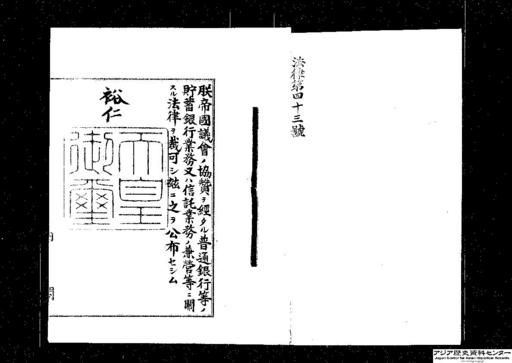 法律第四十三號
朕帝國議會ノ協贊ヲ經タル普通銀行等ノ
貯蓄銀行業務又ハ信託業務ノ兼營等ニ關
スル法律ヲ裁可シ玆ニ之ヲ公布セシム
裕仁
天皇
御璽
内
閣
アジア歴史資料センター
Japan Center for Asian Historical Records